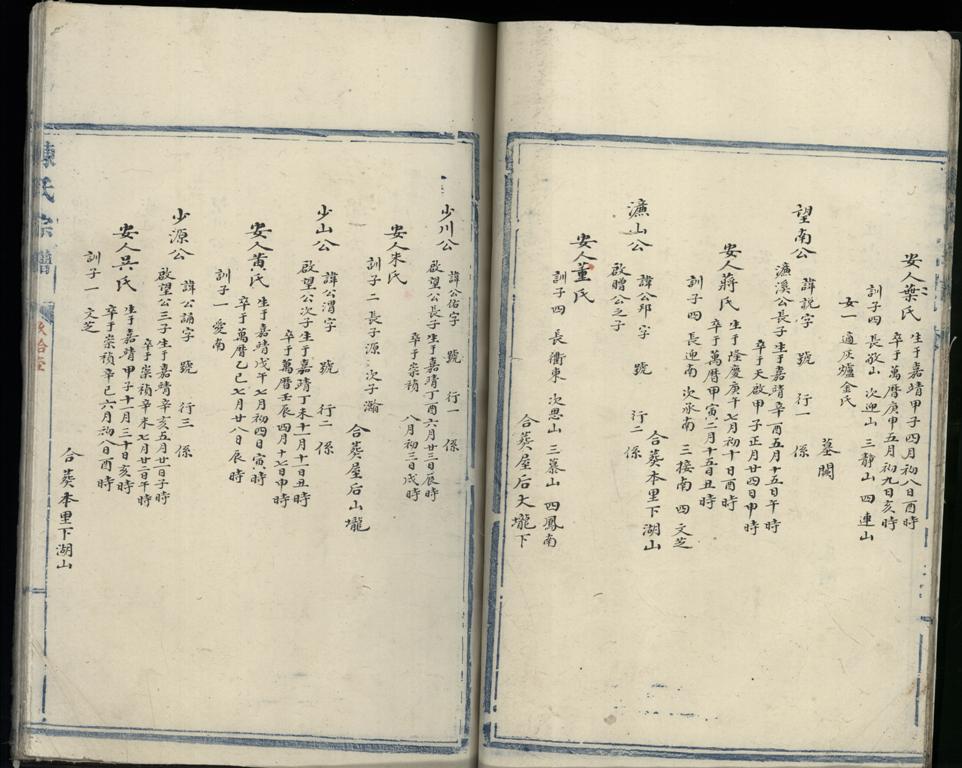 安人葉氏
生于嘉靖甲子四月初八日酉時
卒于萬曆庚申五月初九日亥時
訓子四 長敬山 次迎山 三靜山 四連山
女一 適庄爐金氏
墓闕
望南公 諱説字 號 行一 係
濂溪公長子生于嘉靖辛酉五月十五日午時
卒于天啟甲子正月廿四日申時
安人蔣氏
生于隆慶庚午七月初十日酉時
卒于萬曆甲寅二月十五日丑時
訓子四 長迎南 次承南 三接南 四文芝
合葬本里下湖山
濂山公 諱公邦字 號 行二 係
啟贈公之子
安人董氏
訓子四 長衝東 次思山 三慕山 四鳳南
合葬屋后大壠下
少川公 諱公佑字 號 行一 係
啟望公長子生于嘉靖丁酉六月廿三日辰時
卒于崇禎 八月初三日戌時
安人朱氏
訓子二 長子源 次子瀚
合葬屋后山壠
少山公 諱公渭字 號 行二 係
啟望公次子生于嘉靖丁未十一月十一日丑時
卒于萬曆壬辰四月十七日申時
安人黄氏
生于嘉靖戊午七月初四日寅時
卒于萬曆乙巳七月廿八日辰時
訓子一 愛南
少源公 諱公誦字 號 行三 係
啟望公三子生于嘉靖辛亥五月廿一日子時
卒于崇禎辛未七月廿二日午時
安人吳氏
生于嘉靖甲子十一月三十日亥時
卒于崇禎辛巳六月初八日酉時
訓子一 文芝
合葬本里下湖山
陳氏宗譜